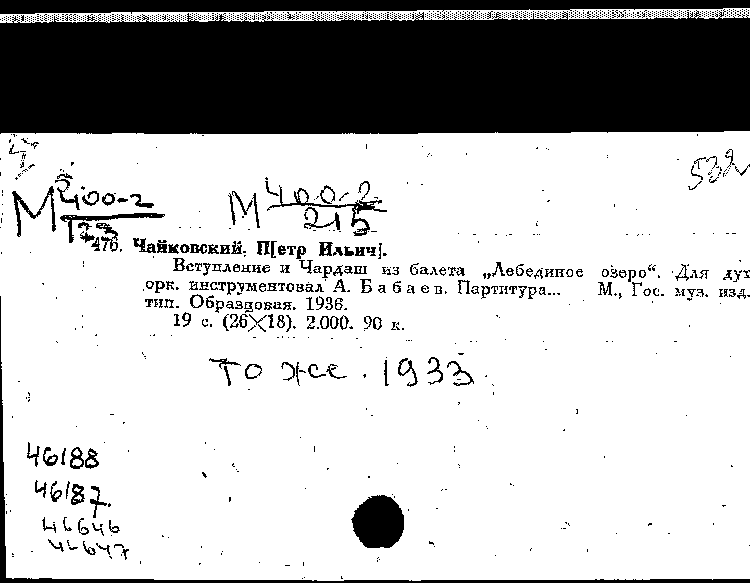 532
М 400-2 М 400-2
123 215
476. Чайковский, П[етр Ильич].
Вступление и Чардаш из балета „Лебединое озеро“. Для дух
орк. инструментовал А. Бабаев. Партитура... М., Гос. муз. изд.
тип. Образцовая. 1936.
19 с. (26×18). 2.000. 90 к.
то же. 1933.
46188
46187.
46646
46647